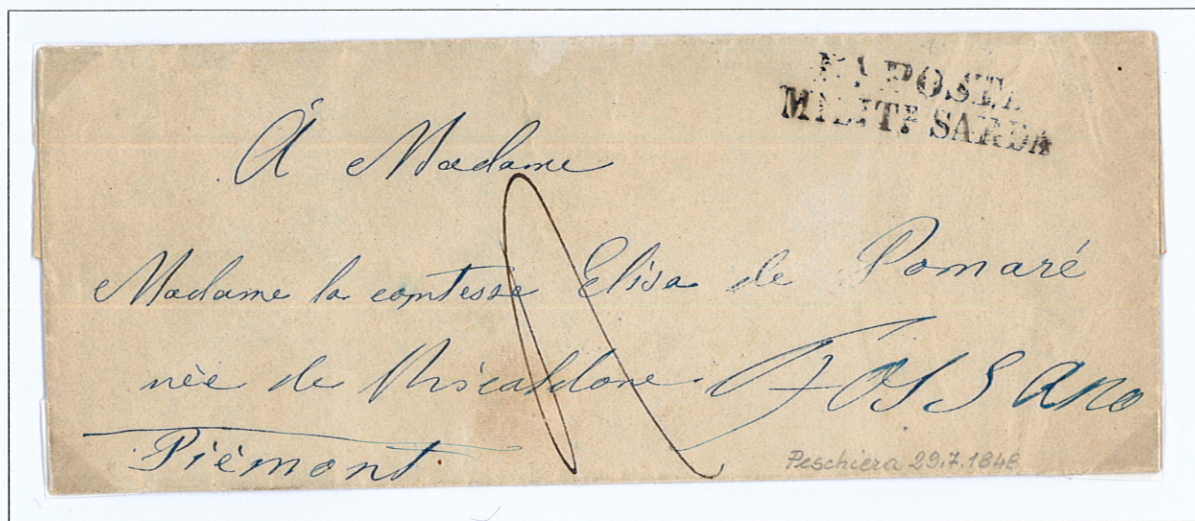 Rᴬ POSTA
MILITE SARDA
À Madame
Madame la comtesse Elisa de Pomaré
née de Ricaldone. FOSSANO
Piémont.
Peschiera 29.7.1848